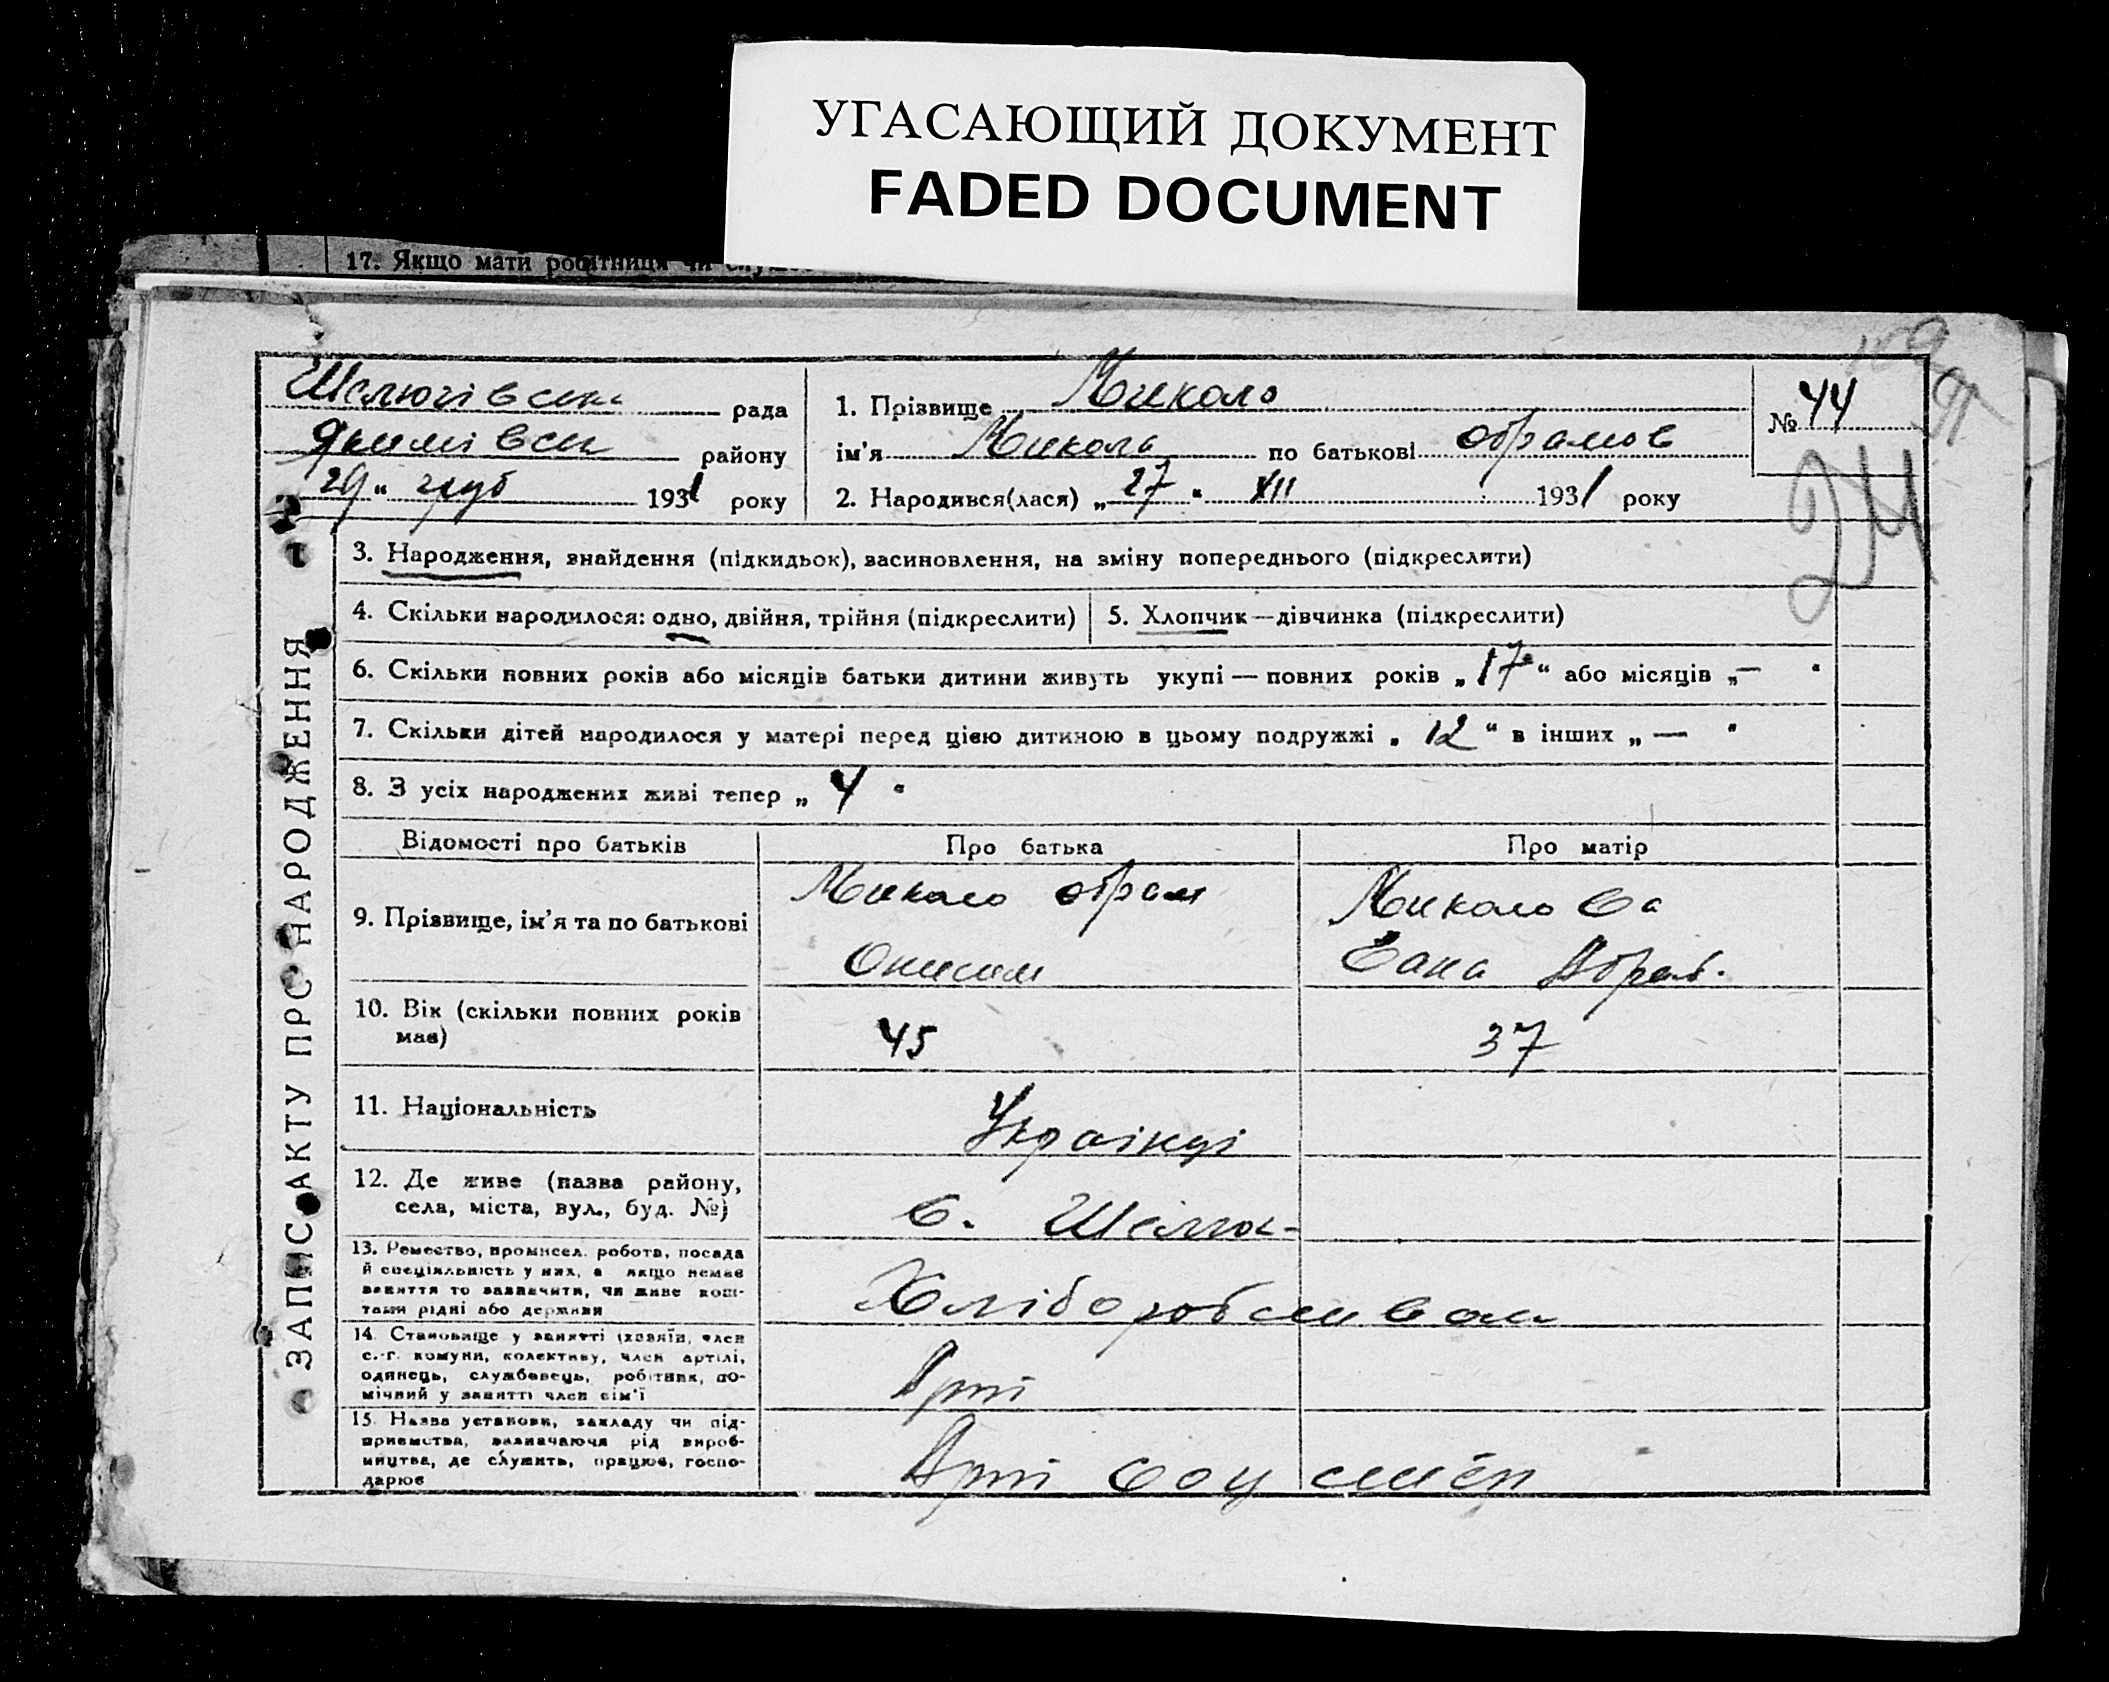 УГАСАЮЩИЙ ДОКУМЕНТ
FADED DOCUMENT
17. Якщо мати робітниця чи
рада
району
29 " груд 1931 року
1. Прізвище Миколо
ім'я Микола по батькові обрамов
2. Народився(лася) „ 27 " XII 1931 року
№ 44
24
ЗАПИС АКТУ ПРО НАРОДЖЕННЯ
3. Народження, знайдення (підкидьок), засиновлення, на зміну попереднього (підкреслити)
4. Скільки народилося: одно, двійня, трійня (підкреслити)
5. Хлопчик—дівчинка (підкреслити)
6. Скільки повних років або місяців батьки дитини живуть укупі — повних років „ 17 " або місяців „ — "
7. Скільки дітей народилося у матері перед цією дитиною в цьому подружжі „ 12 " в інших „ — "
8. З усіх народжених живі тепер „ 4 "
Відомості про батьків Про батька Про матір
9. Прізвище, ім'я та по батькові
Миколо обрам
Онисим
Миколова
10. Вік (скільки повних років
має)
45
37
11. Національність
Українці
12. Де живе (назва району,
села, міста, вул., буд. №)
с.
13. Ремество, промисел. робота, посада
й спеціяльність у них, а якщо немає
заняття то зазначити, чи живе кош-
тами рідні або держави
14. Становище у занятті (хазяїн, член
с.-г. комуни, колективу, член артілі,
одинець, службовець, робітник, по-
мічний у занятті член сім'ї
Арті
15. Назва установи, закладу чи під-
приємства, зазначаючи рід вироб-
ництва, де служить, працює, госпо-
дарює
Арті соц